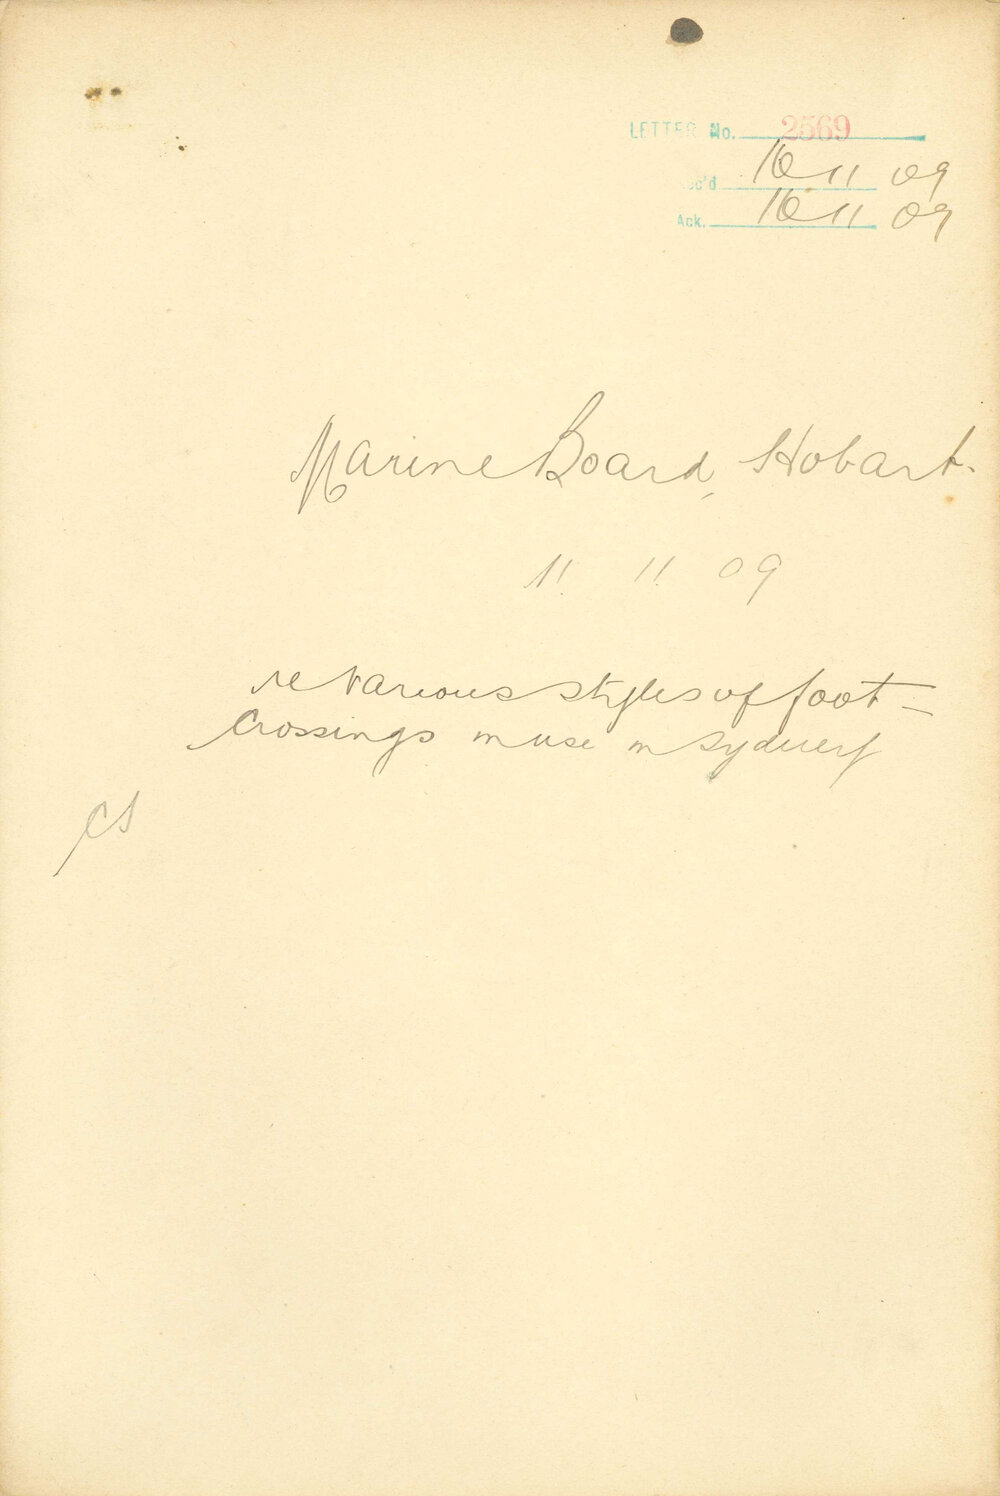 LETTER No. 2569
Rec'd 16 11 09
Ack. 16 11 09
Marine Board, Hobart.
11. 11 09
re various styles of foot=
Crossings in use in Sydney
CS